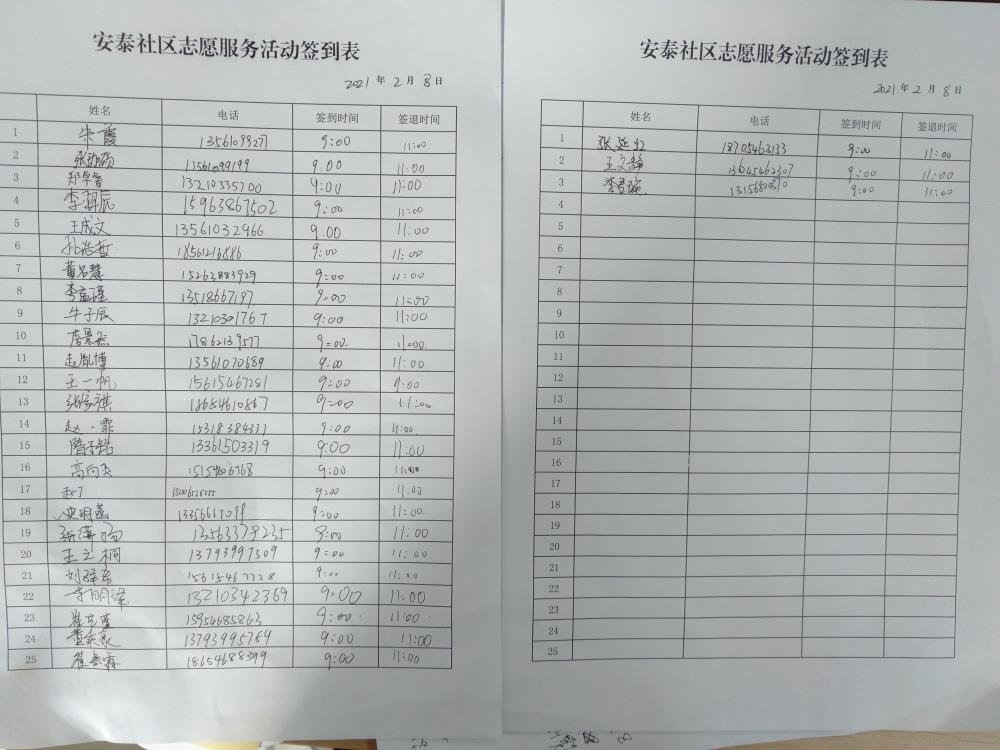 安泰社区志愿服务活动签到表
2021 年 2 月 8 日
姓名 电话 签到时间 签退时间
1 朱霞 13561099277 9:00 11:00
2 13561099199 9:00 11:00
3 13210335700 9:00 11:00
4 15963867502 9:00 11:00
5 王成文 13561032966 9:00 11:00
6 孙浩哲 18561216886 9:00 11:00
7 黄名慧 15263883929 9:00 11:00
8 李孟瑾 13518667197 9:00 11:00
9 牛子辰 13210301767 9:00 11:00
10 17862139577 9:00 11:00
11 赵胤博 13561070689 9:00 11:00
12 王一帆 15615467281 9:00 11:00
13 张家祺 18654610867 9:00 11:00
14 赵一霏 15318384331 9:00 11:00
15 13361503319 9:00 11:00
16 15154606768 9:00 11:00
17 9:00 11:00
18 13356617099 9:00 11:00
19 13563379235 9:00 11:00
20 王之桐 13793997509 9:00 11:00
21 15615467728 9:00 11:00
22 13210342369 9:00 11:00
23 15954685863 9:00 11:00
24 13793995769 9:00 11:00
25 18654688399 9:00 11:00
安泰社区志愿服务活动签到表
2021 年 2 月 8 日
姓名 电话 签到时间 签退时间
1 张延红 18705463133 9:00 11:00
2 王文静 13645462307 9:00 11:00
3 9:00 11:00
4
5
6
7
8
9
10
11
12
13
14
15
16
17
18
19
20
21
22
23
24
25